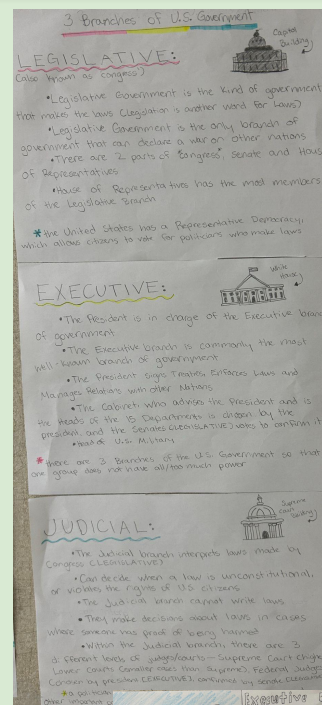 3 Branches of U.S. Government
Capitol
Building
LEGISLATIVE:
(also known as congress)
•Legislative Government is the kind of government
that makes the laws (Legislation is another word for Laws)
•Legislative Government is the only branch of
government that can declare a war on other nations
•There are 2 parts of Congress, Senate and Hous
of Representatives
•House of Representatives has the most members
of the Legislative Branch
*the United States has a Representative Democracy,
which allows citizens to vote for politicians who make laws
White
House
EXECUTIVE:
•The President is in charge of the Executive bran
of government
•The Executive branch is commonly the most
well-known branch of government
•The President signs Treaties, Enforces Laws and
Manages Relations with other Nations
•The Cabinet, who advises the President and is
the Heads of the 15 Departments is chosen by the
president, and the Senate (LEGISLATIVE) votes to confirm it
•Head of U.S. Military
*there are 3 Branches of the U.S. Government so that
one group does not have all/too much power
Supreme
Court
Building
JUDICIAL:
•The Judicial branch interprets laws made by
Congress (LEGISLATIVE)
•Can decide when a law is unconstitutional,
or violates the rights of US citizens
•The Judicial branch cannot write laws
•They make decisions about laws in cases
where someone has proof of being harmed
•Within the Judicial branch, there are 3
different levels of judges/courts - Supreme Court
Lower Courts (smaller cases than Supreme), Federal Judges
(chosen by president (EXECUTIVE), confirmed by senate
*a
Executive